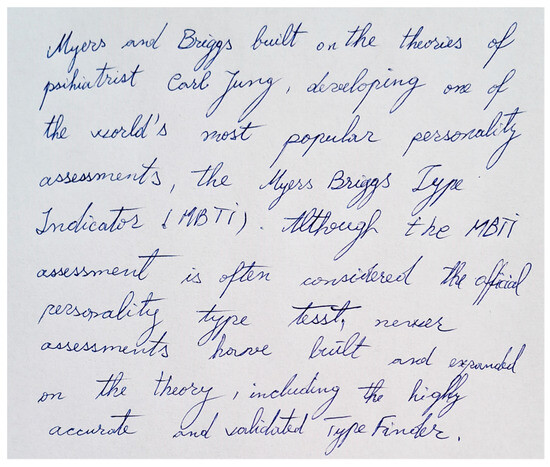 Myers and Briggs built on the theories of
psihiatrist Carl Jung, developing one of
the world's most popular personality
assessments, the Myers Briggs Type
Indicator (MBTi). Although the MBTi
assessment is often considered the official
personality type tesst, newer
assessments have built and expanded
on the theory, including the highly
accurate and validated TypeFinder.